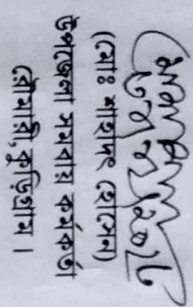 (মোঃ শাহাদৎ হোসেন)
উপজেলা সমবায় কর্মকর্তা
রৌমারি,কুড়িগ্রাম ।